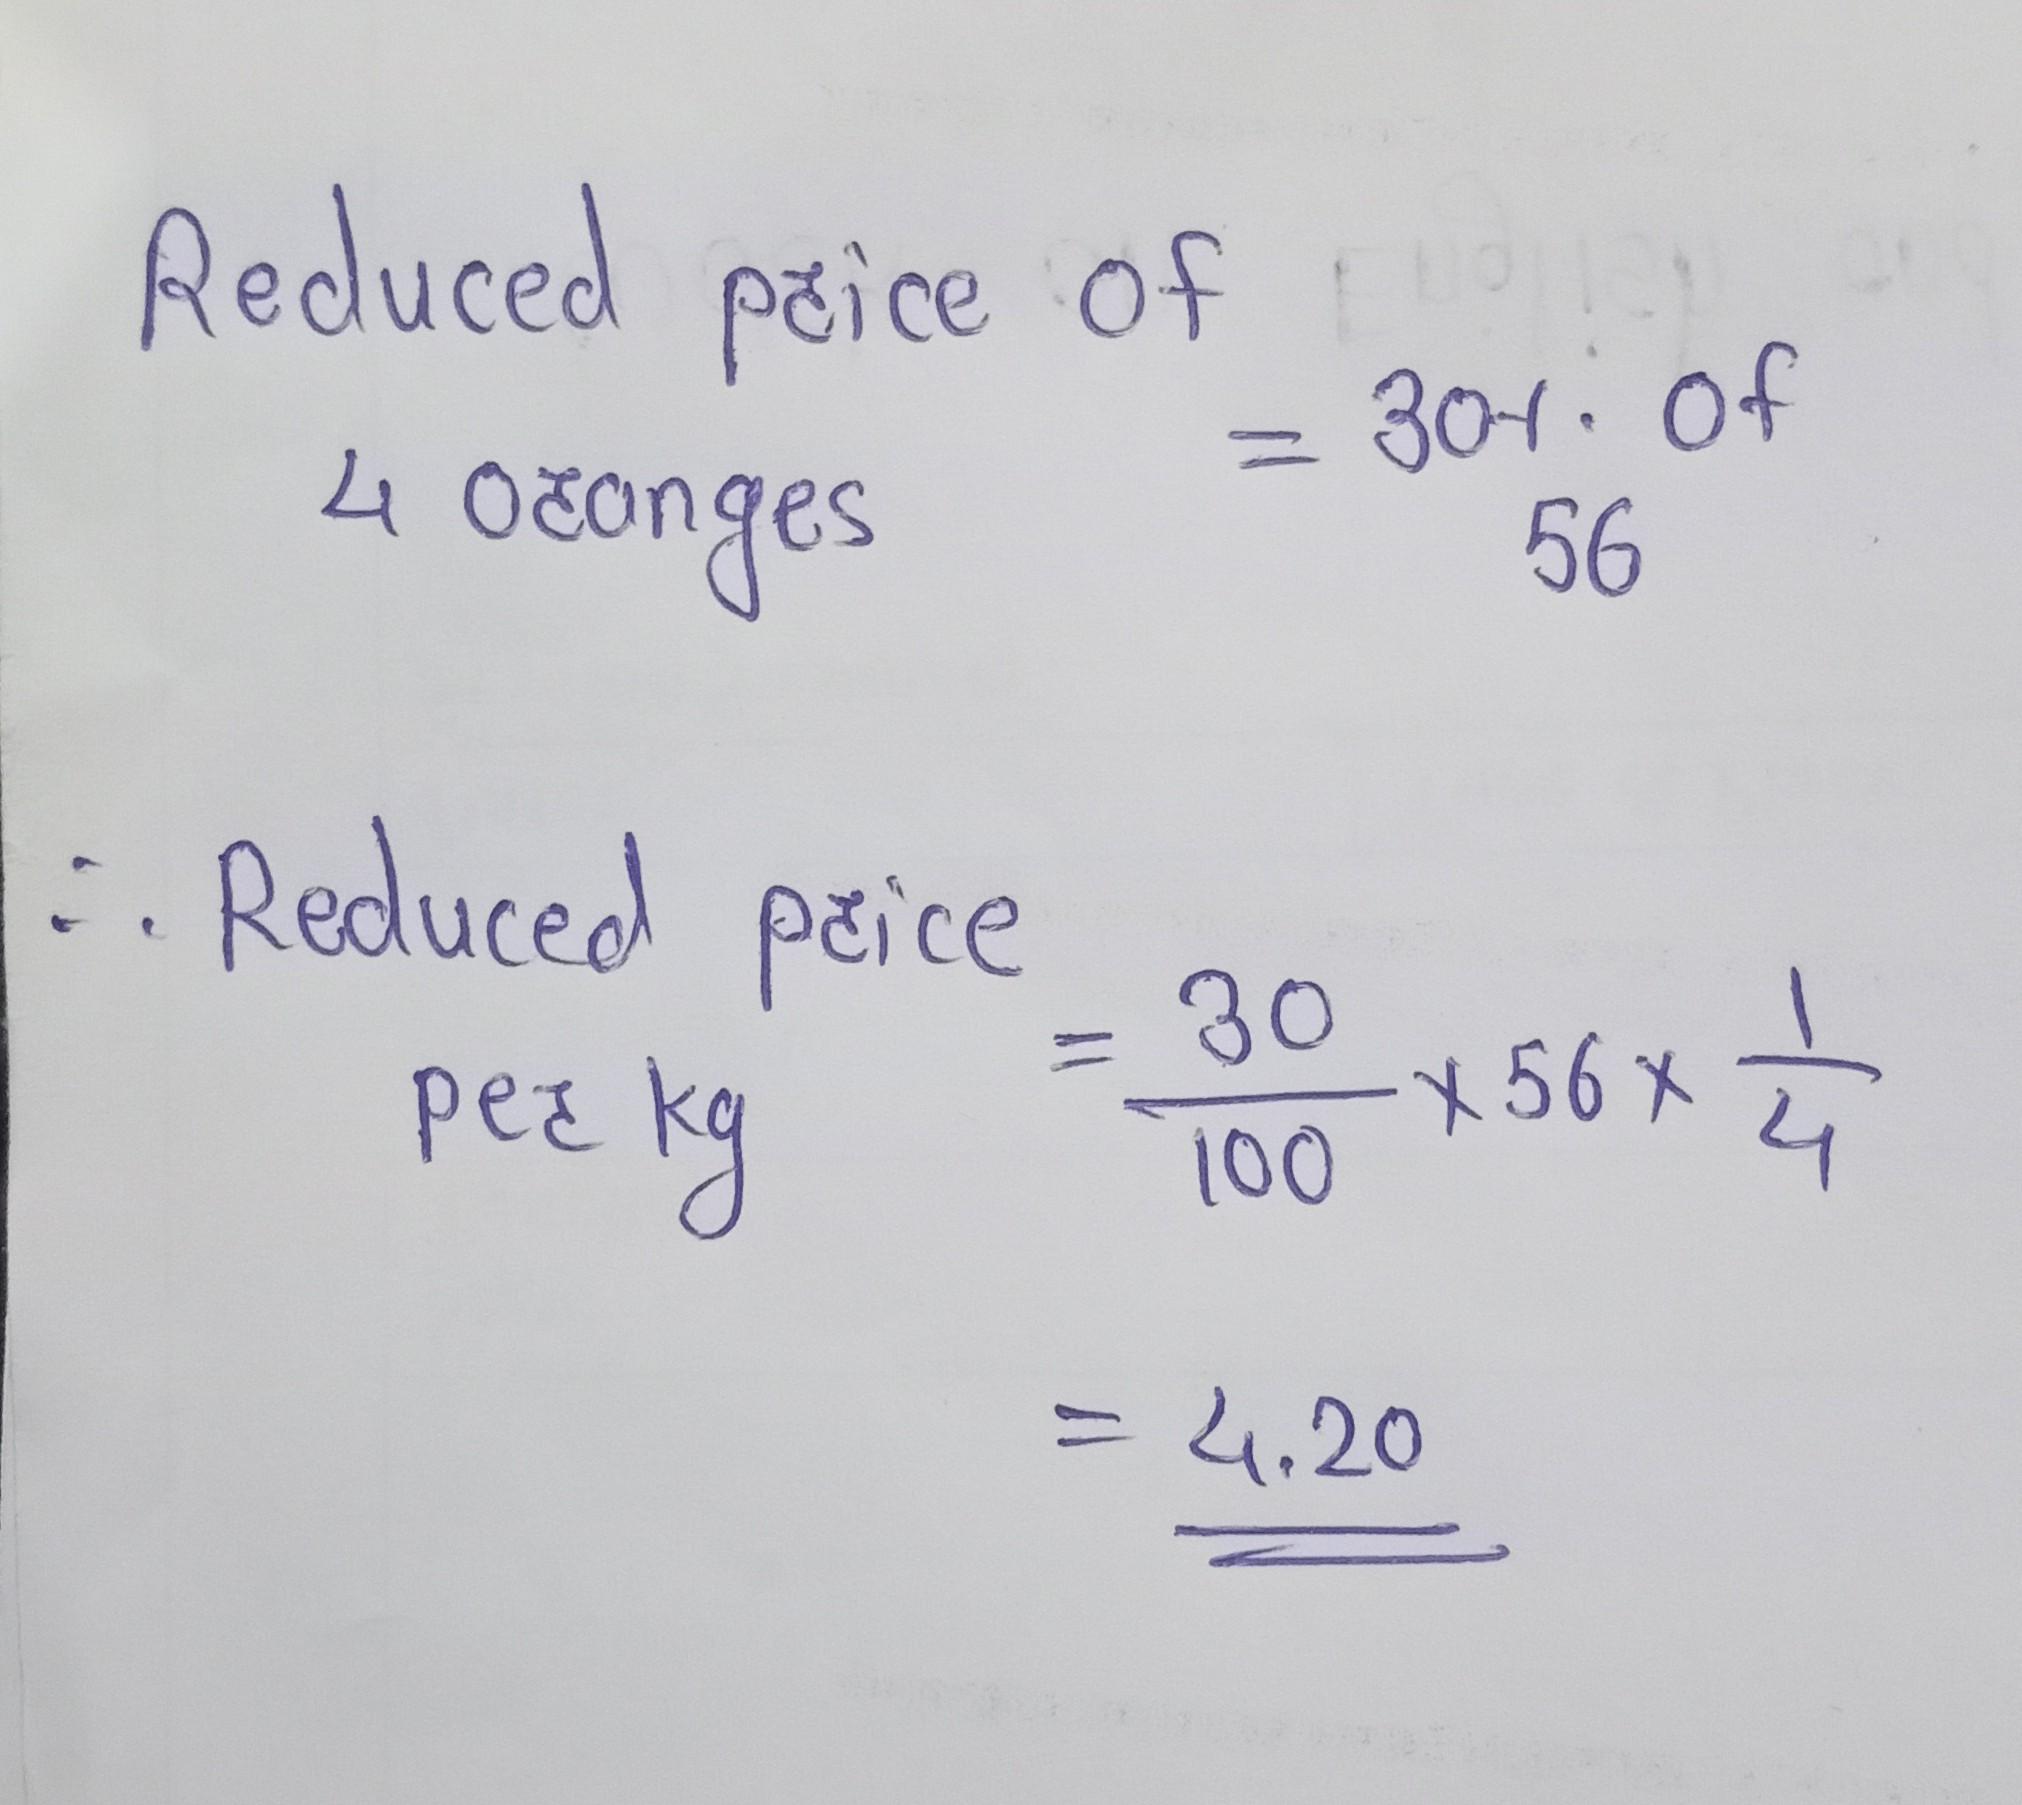 Reduced price of
4 oranges = 30% of
56
∴ Reduced price
per kg = 30/100 x 56 x 1/4
= 4.20